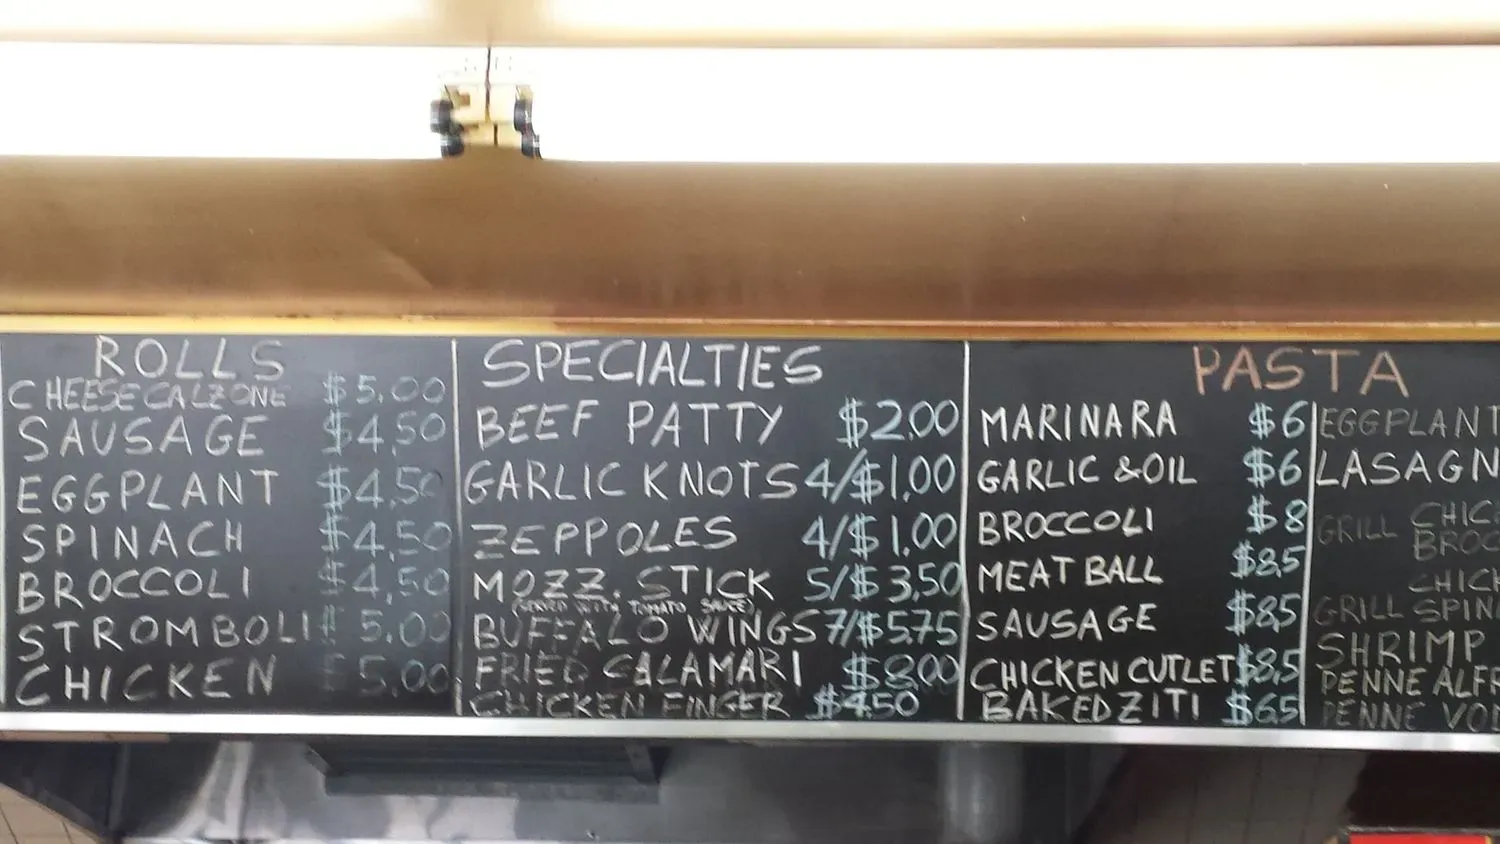 ROLLS
CHEESE CALZONE $5.00
SAUSAGE $4.50
EGGPLANT $4.50
SPINACH $4.50
BROCCOLI $4.50
STROMBOLI $5.00
CHICKEN $5.00
SPECIALTIES
BEEF PATTY $2.00
GARLIC KNOTS 4/$1.00
ZEPPOLES 4/$1.00
MOZZ. STICK 5/$3.50
(SERVED WITH TOMATO SAUCE)
BUFFALO WINGS 7/$5.75
FRIED CALAMARI $8.00
CHICKEN FINGER $4.50
PASTA
MARINARA $6
GARLIC & OIL $6
BROCCOLI $8
MEAT BALL $8.5
SAUSAGE $8.5
CHICKEN CUTLET $8.5
BAKED ZITI $6.5
EGGPLANT
LASAGN
GRILL CHIC
BROC
CHICK
GRILL SPIN
SHRIMP
PENNE ALFR
PENNE VO